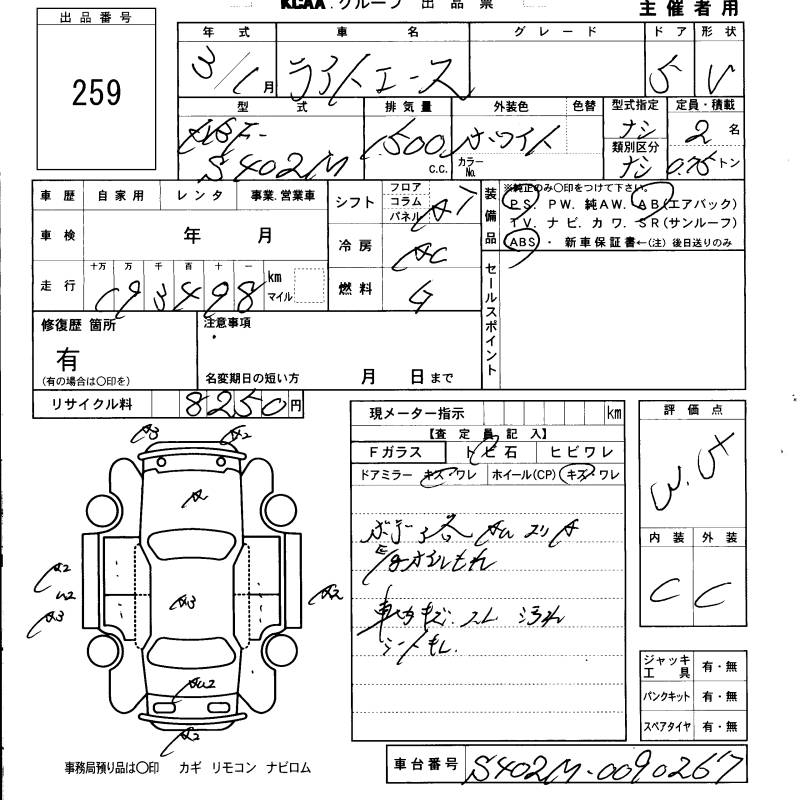 KCAA.グループ 出品票
主催者用
出品番号
259
年式 車名 グレード ドア 形状
3/1月 ライトエース 5 V
型式 排気量 外装色 色替 型式指定 定員・積載
ABF-
S402M 1500 c.c. ホワイト カラーNo. ナシ 2名
類別区分
ナシ 0.75トン
車歴 自家用 レンタ 事業.営業車
シフト フロア コラム パネル AT
車検 年 月
冷房 AC
走行 十万 万 千 百 十 一 km マイル
093498
燃料 G
装備品 ※純正のみ〇印をつけて下さい。
PS. PW. 純AW. AB(エアバック)
TV. ナビ. カワ. SR(サンルーフ)
ABS・ 新車保証書←(注) 後日送りのみ
セールスポイント
修復歴 箇所
有
(有の場合は〇印を)
注意事項
名変期日の短い方 月 日まで
リサイクル料 8250円
現メーター指示 km
【査定員記入】
Fガラス トビ石 ヒビワレ
ドアミラー キズ・ワレ ホイール(CP) キズ・ワレ
評価点
内装 外装
C C
A3 A2
A
A2
A3
A2
U2
A3
A2
ジャッキ工具 有・無
パンクキット 有・無
スペアタイヤ 有・無
事務局預り品は〇印 カギ リモコン ナビロム
車台番号 S402M-0090267